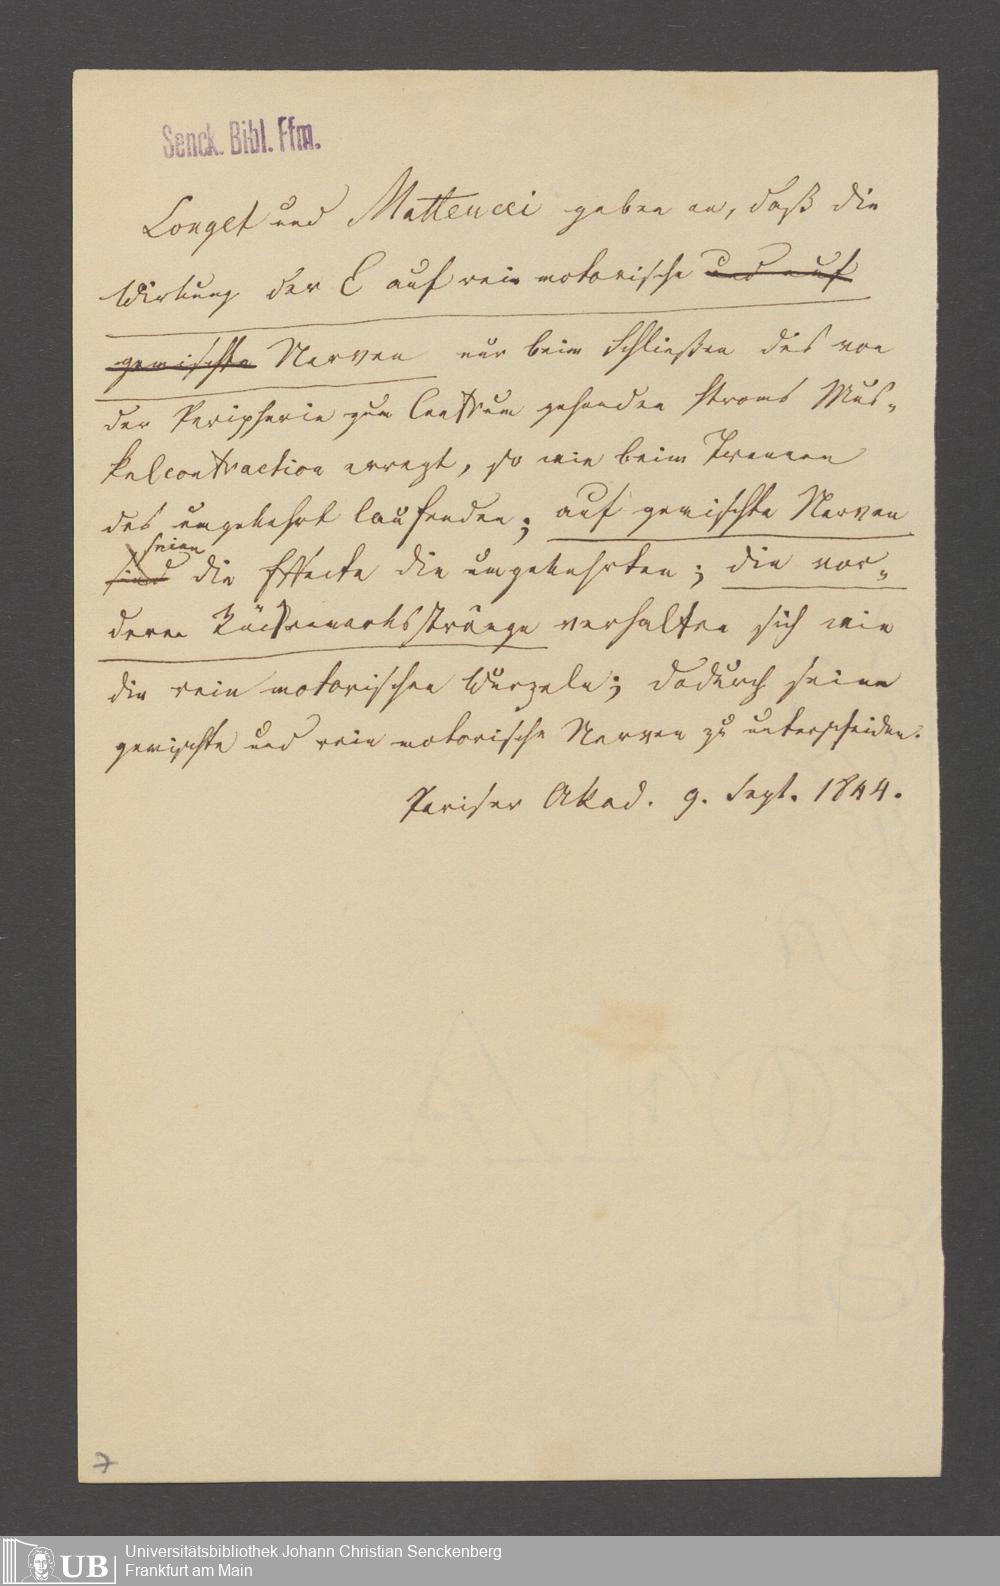 Senck. Bibl. Ffm.
Longet und Matteucci geben an, daß die
Wirkung der E auf rein motorische und auf
gemischte Nerven nur beim Schließen des von
der Peripherie zum Centrum gehenden Stroms Mus-
kelcontraction erregt, so wie beim Trennen
des umgekehrt laufenden; auf gemischte Nerven
seien
sind die Effecte die umgekehrten; die vor-
deren Rückenmarksstränge verhalten sich wie
die rein motorischen Wurzeln; dadurch seien
gemischte und rein motorische Nerven zu unterscheiden.
Pariser Akad. 9. Sept. 1844.
7
UB
Universitätsbibliothek Johann Christian Senckenberg
Frankfurt am Main